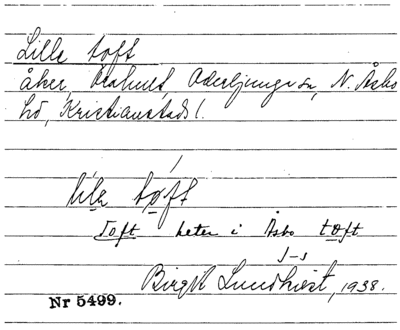 Lille toft
åker, Ekahult, Oderljunga sn, N. Åsbo
hd, Kristianstads l.
lila tǫft
Toft heter i Åsbo tǫft
J-s
Birgit Lundkvist, 1938.
Nr 5499.